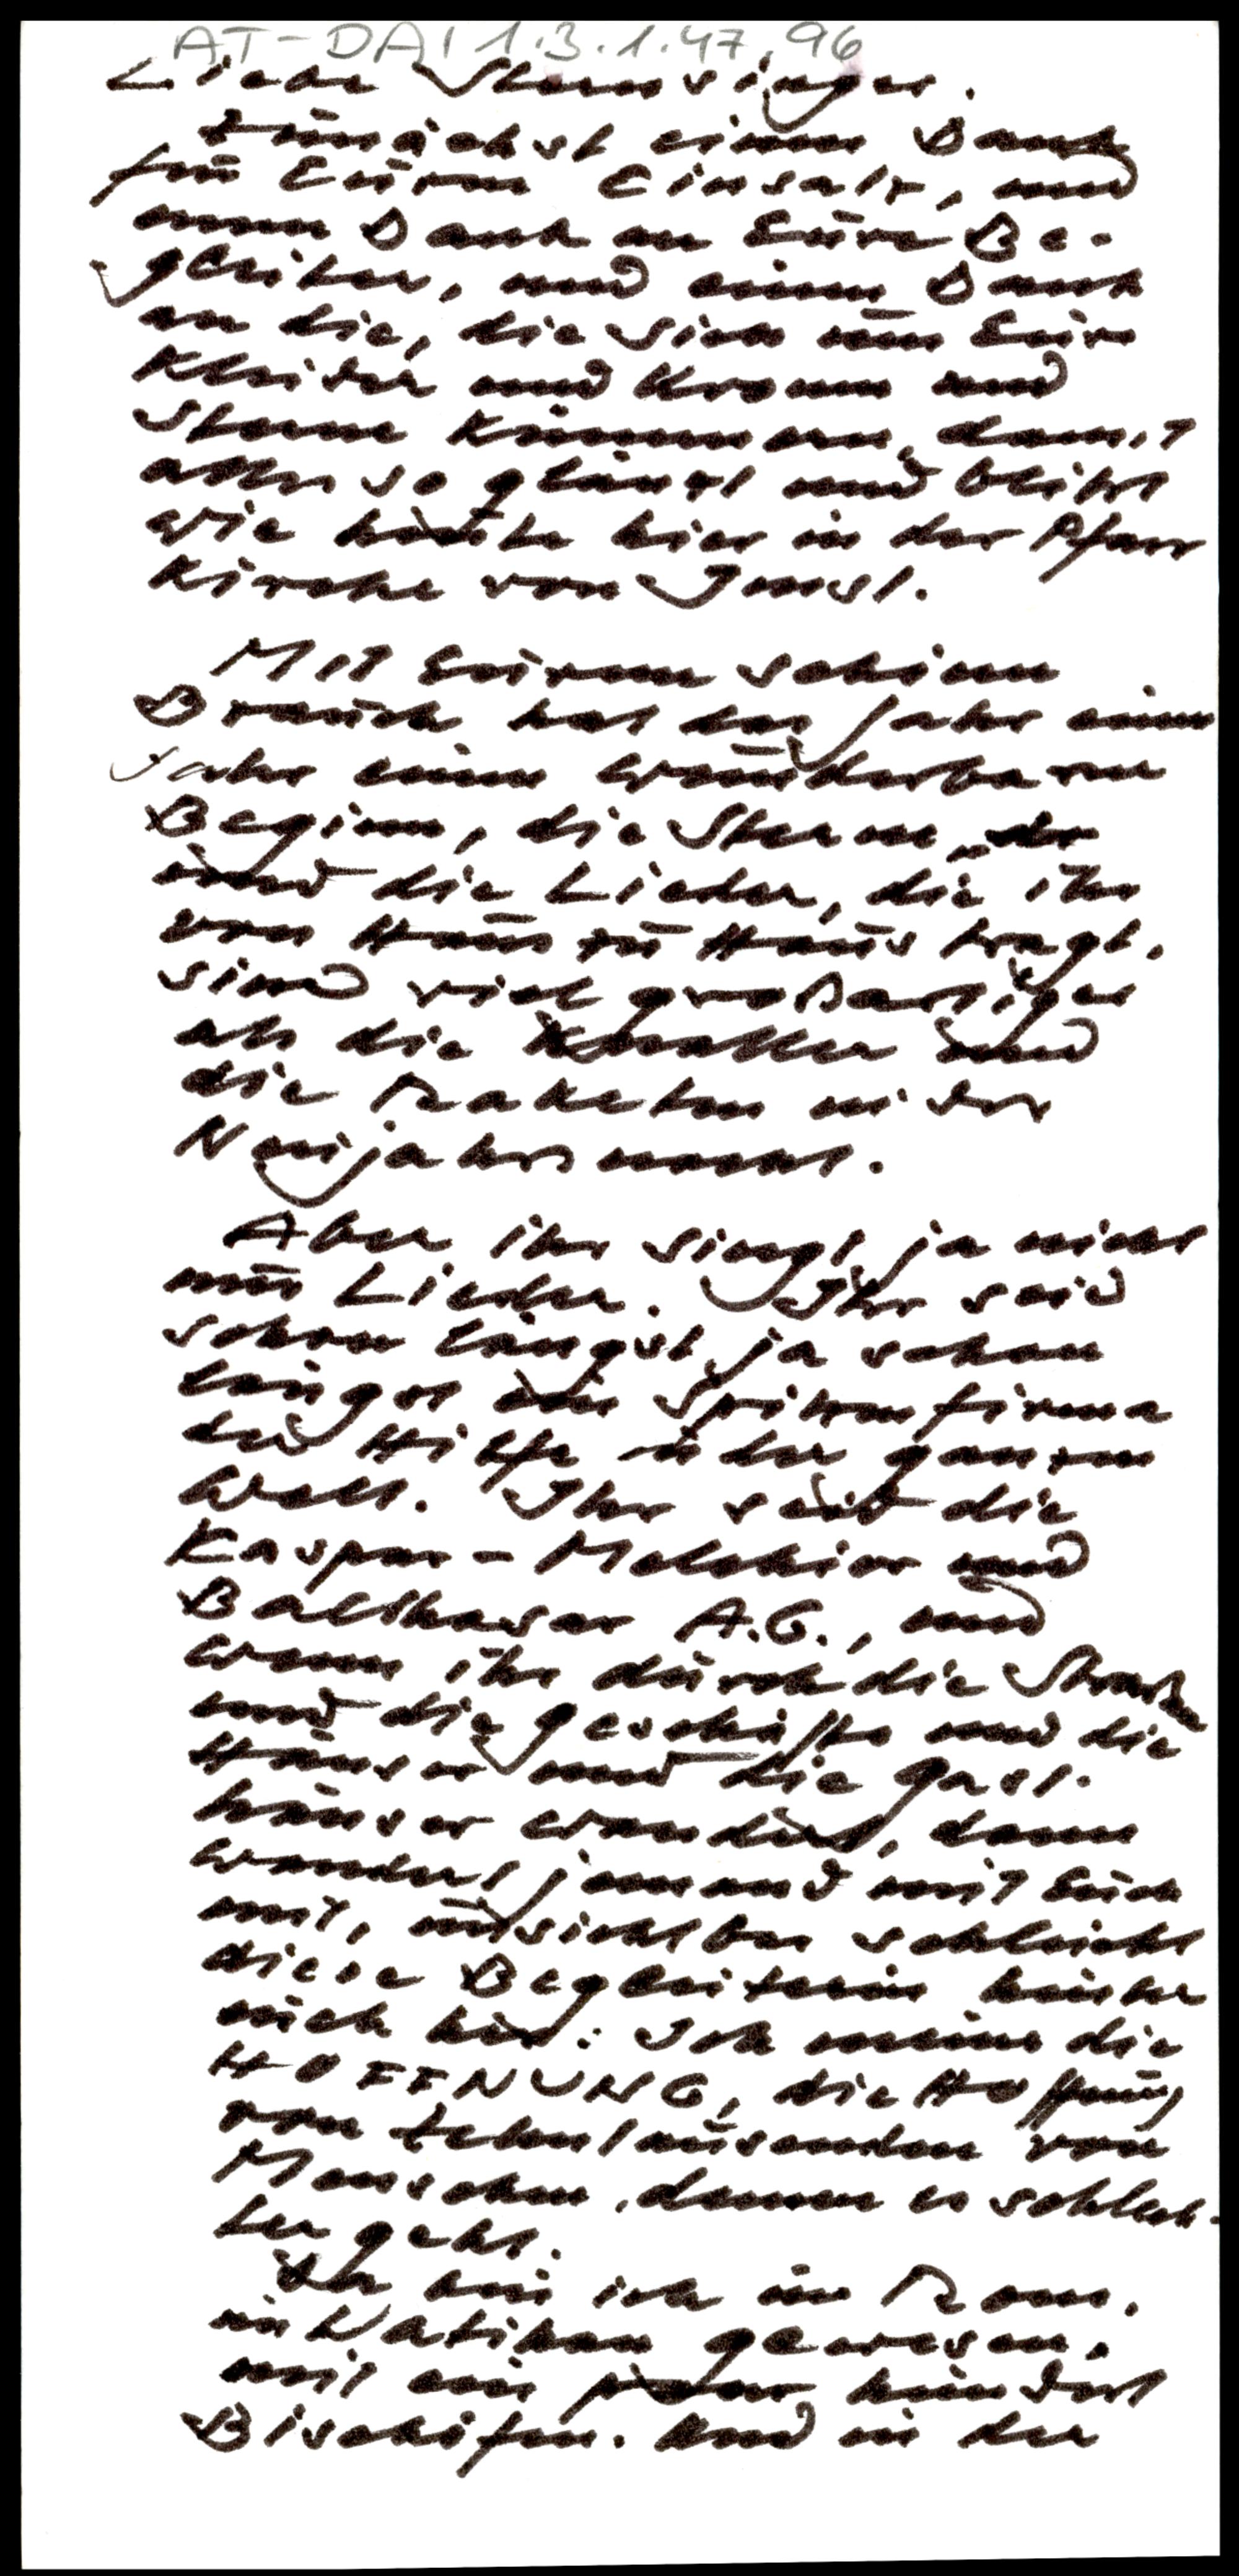 AT-DAI 1.3.1.47.96
Liebe Sternsinger.
Zunächst einen Dank
für Euren Einsatz, und
einen Dank an Eure Be-
gleiter, und einen Dank
an die, die sich um Eure
Kleider und Kronen und
Sterne kümmern, damit
alles so glänzt und blitzt
wie heute hier in der Pfarr
kirche von Imst.
Mit Eurem schönen
Brauch hat das Jahr einen
Jahr einen wunderbaren
Beginn, die Sterne
und die Lieder, die ihr
von Haus zu Haus tragt.
sind viel großartiger
als die Knaller und
die Raketen in der
Neujahrsnacht.
Aber ihr singt ja nicht
nur Lieder. Ihr seid
schon längst ja schon
längst die Spitzenfirma
der Hilfe in der ganzen
Welt. Ihr seid die
Kaspar-Melchior und
Balthasar A.G., und
wenn ihr durch die Straßen
und die Geschäfte und die
Häuser und die Gast-
häuser wandert, dann
wandert jemand mit Euch
mit, unsichtbar schleicht
diese Begleiterin hinter
euch her: Ich meine die
HOFFNUNG, die Hoffnung
von zehntausenden von
Menschen, denen es schlech-
ter geht.
Da bin ich in Rom,
im Vatikan gewesen,
mit ein paar hundert
Bischöfen. Und in der